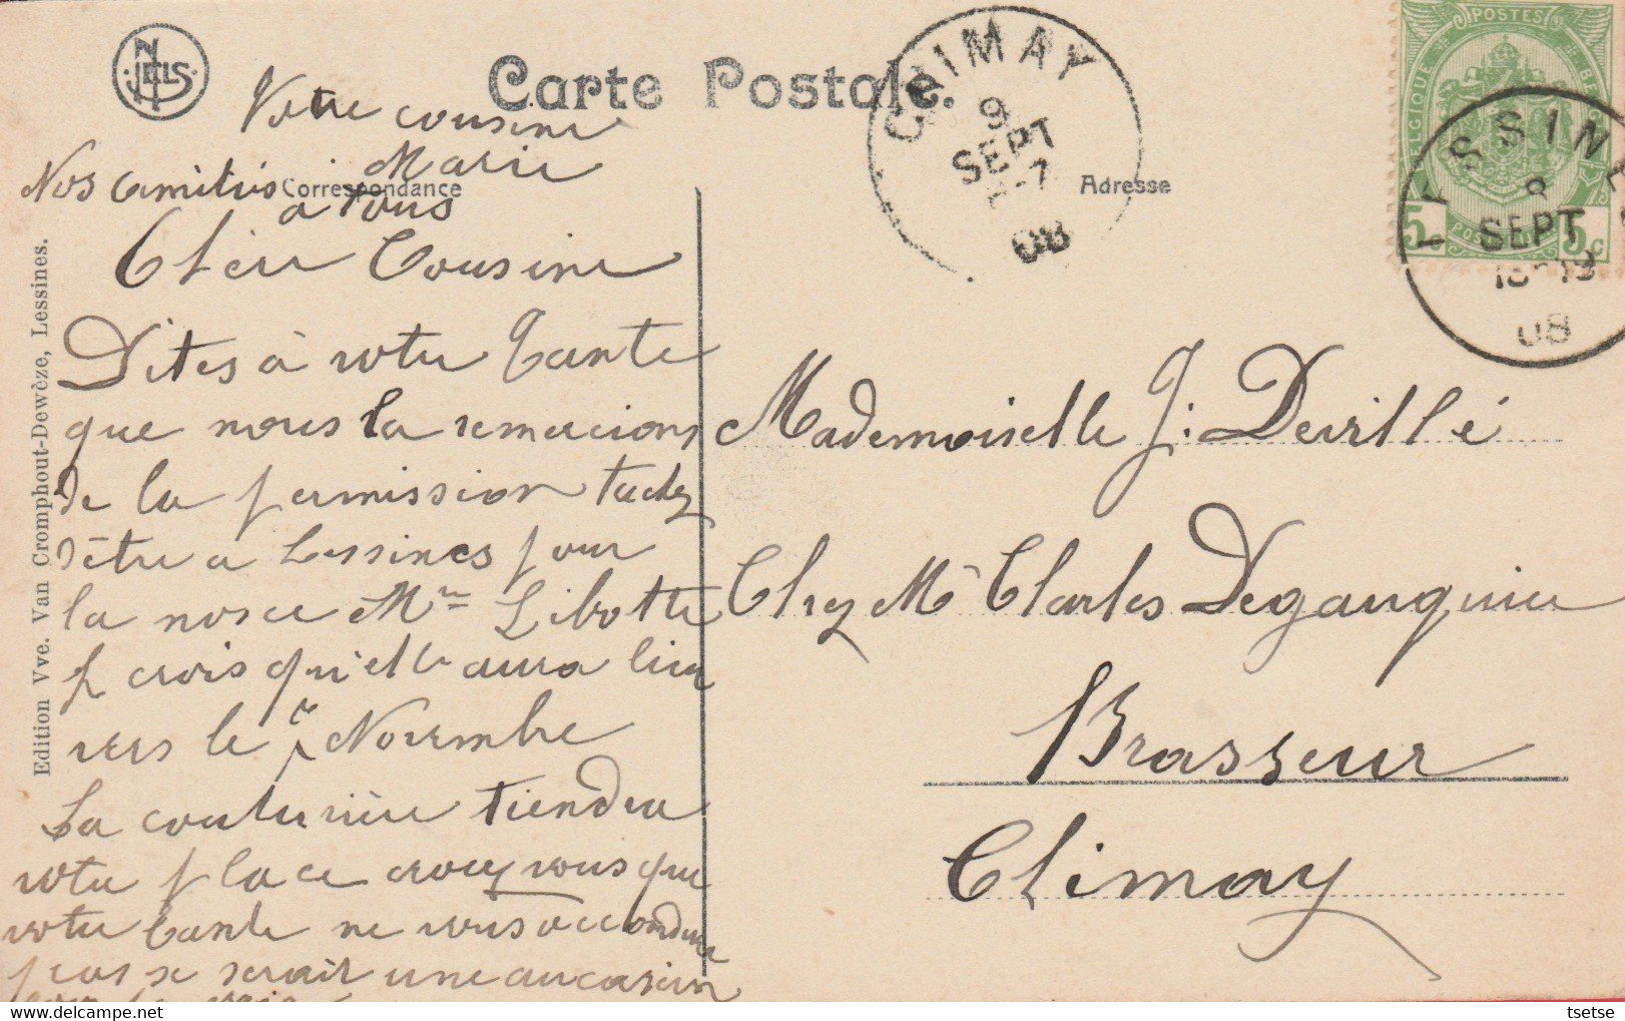 NELS
Carte Postale.
CHIMAY
9
SEPT
08
POSTES
BELGIQUE
5c
5c
LESSINES
8
SEPT
18-19
08
Votre cousine
Marie
Nos amitiés
à tous
Correspondance
Adresse
Edition Vve. Van Cromphout-Dewèze, Lessines.
Chère Cousine
Dites à votre Tante
que nous la remercions
de la permission
d'être a Lessines pour
la noce Mr Libotte
je crois qu'elle aura lieu
vers le Novembre
La couturière tiendra
votre place croyez vous que
votre Tante ne vous accordera
pas ce serait une occasion
pour la voir
Mademoiselle J. Devillé
Chez Mr Charles Deganquier
Brasseur
Chimay
tsetse